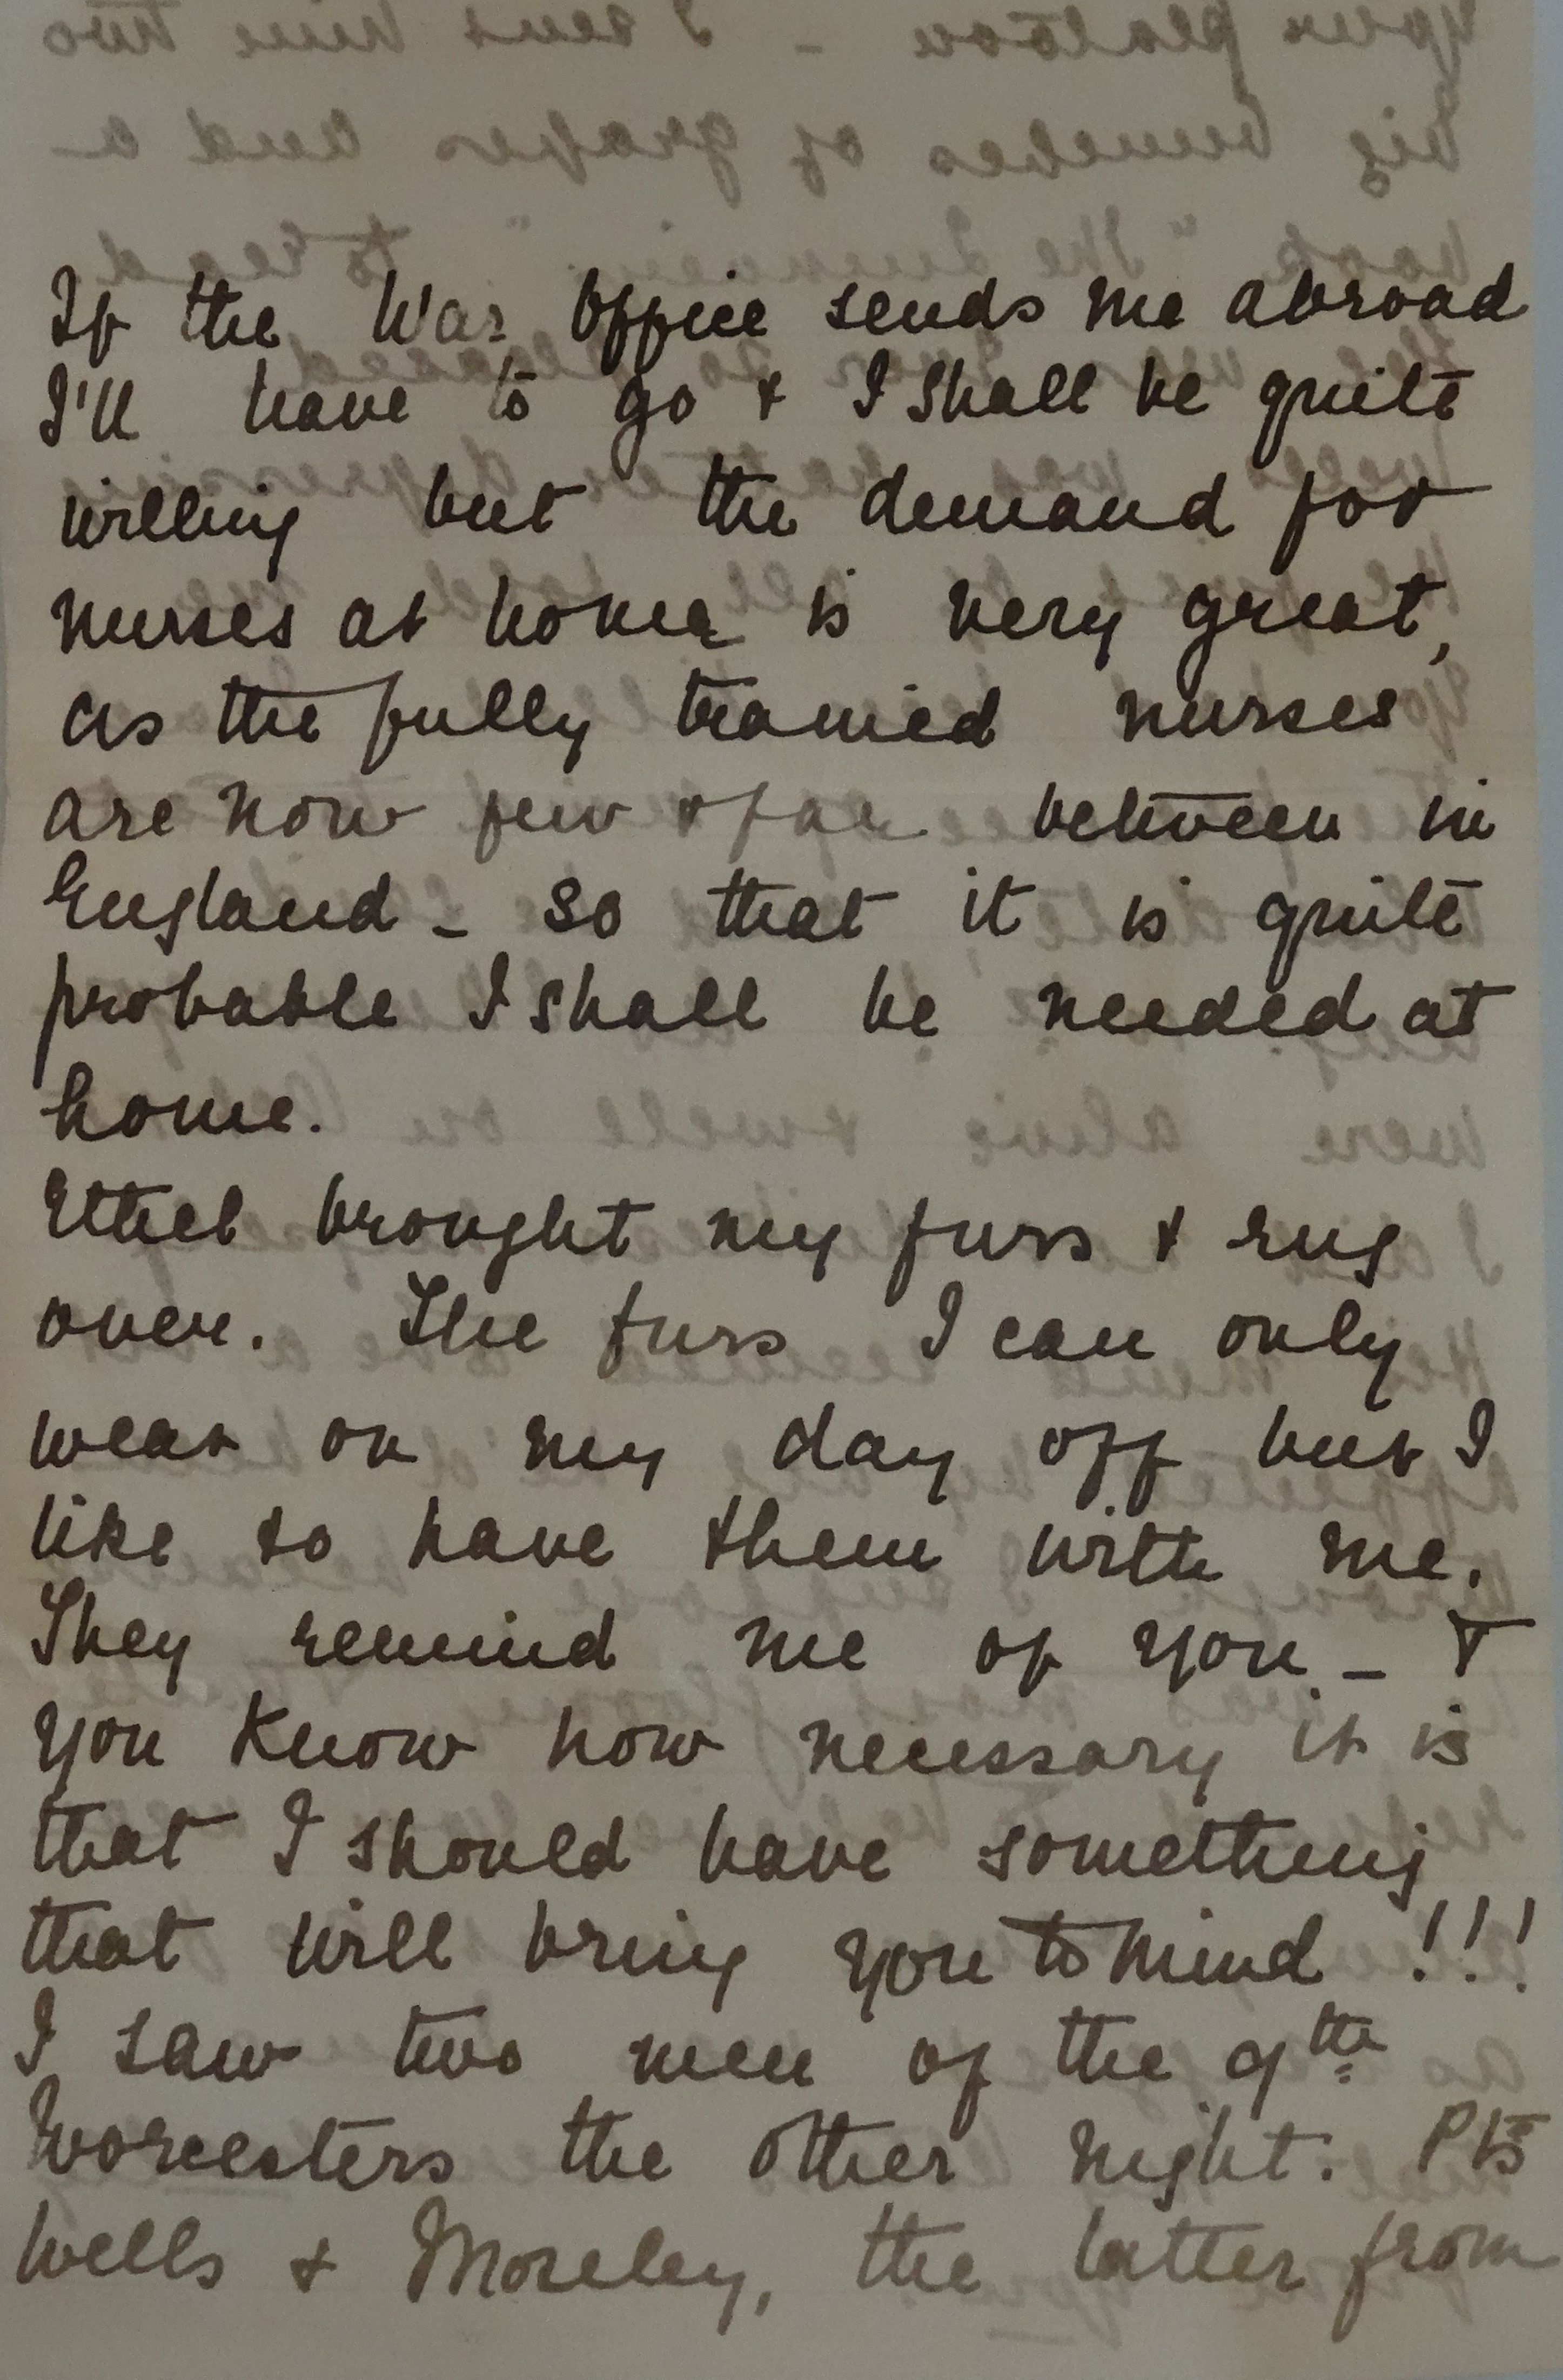 If the War Office sends me abroad
I'll have to go & I shall be quite
willing but the demand for
nurses at home is very great,
as the fully trained nurses
are now few & far between in
England - so that it is quite
probable I shall be needed at
home.
Ethel brought my furs & rug
over. The furs I can only
wear on my day off but I
like to have them with me.
They remind me of you - &
you know how necessary it is
that I should have something
that will bring you to mind !!!
I saw two men of the 9th
Worcesters the other night. Pts
Wells & Moreley, the latter from